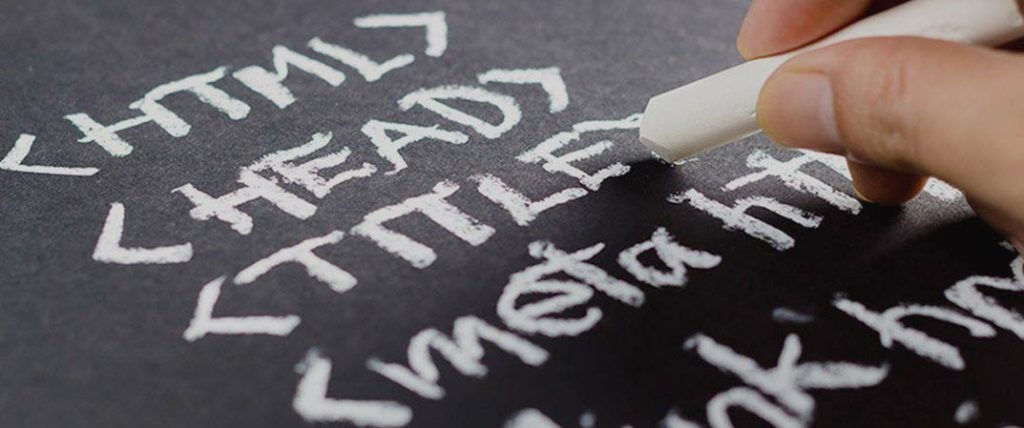 <HTML>
<HEAD>
<TITLE
<meta ht
ink h